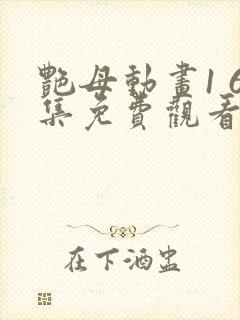 艷母動畫16
集免費觀看
在下酒蛊